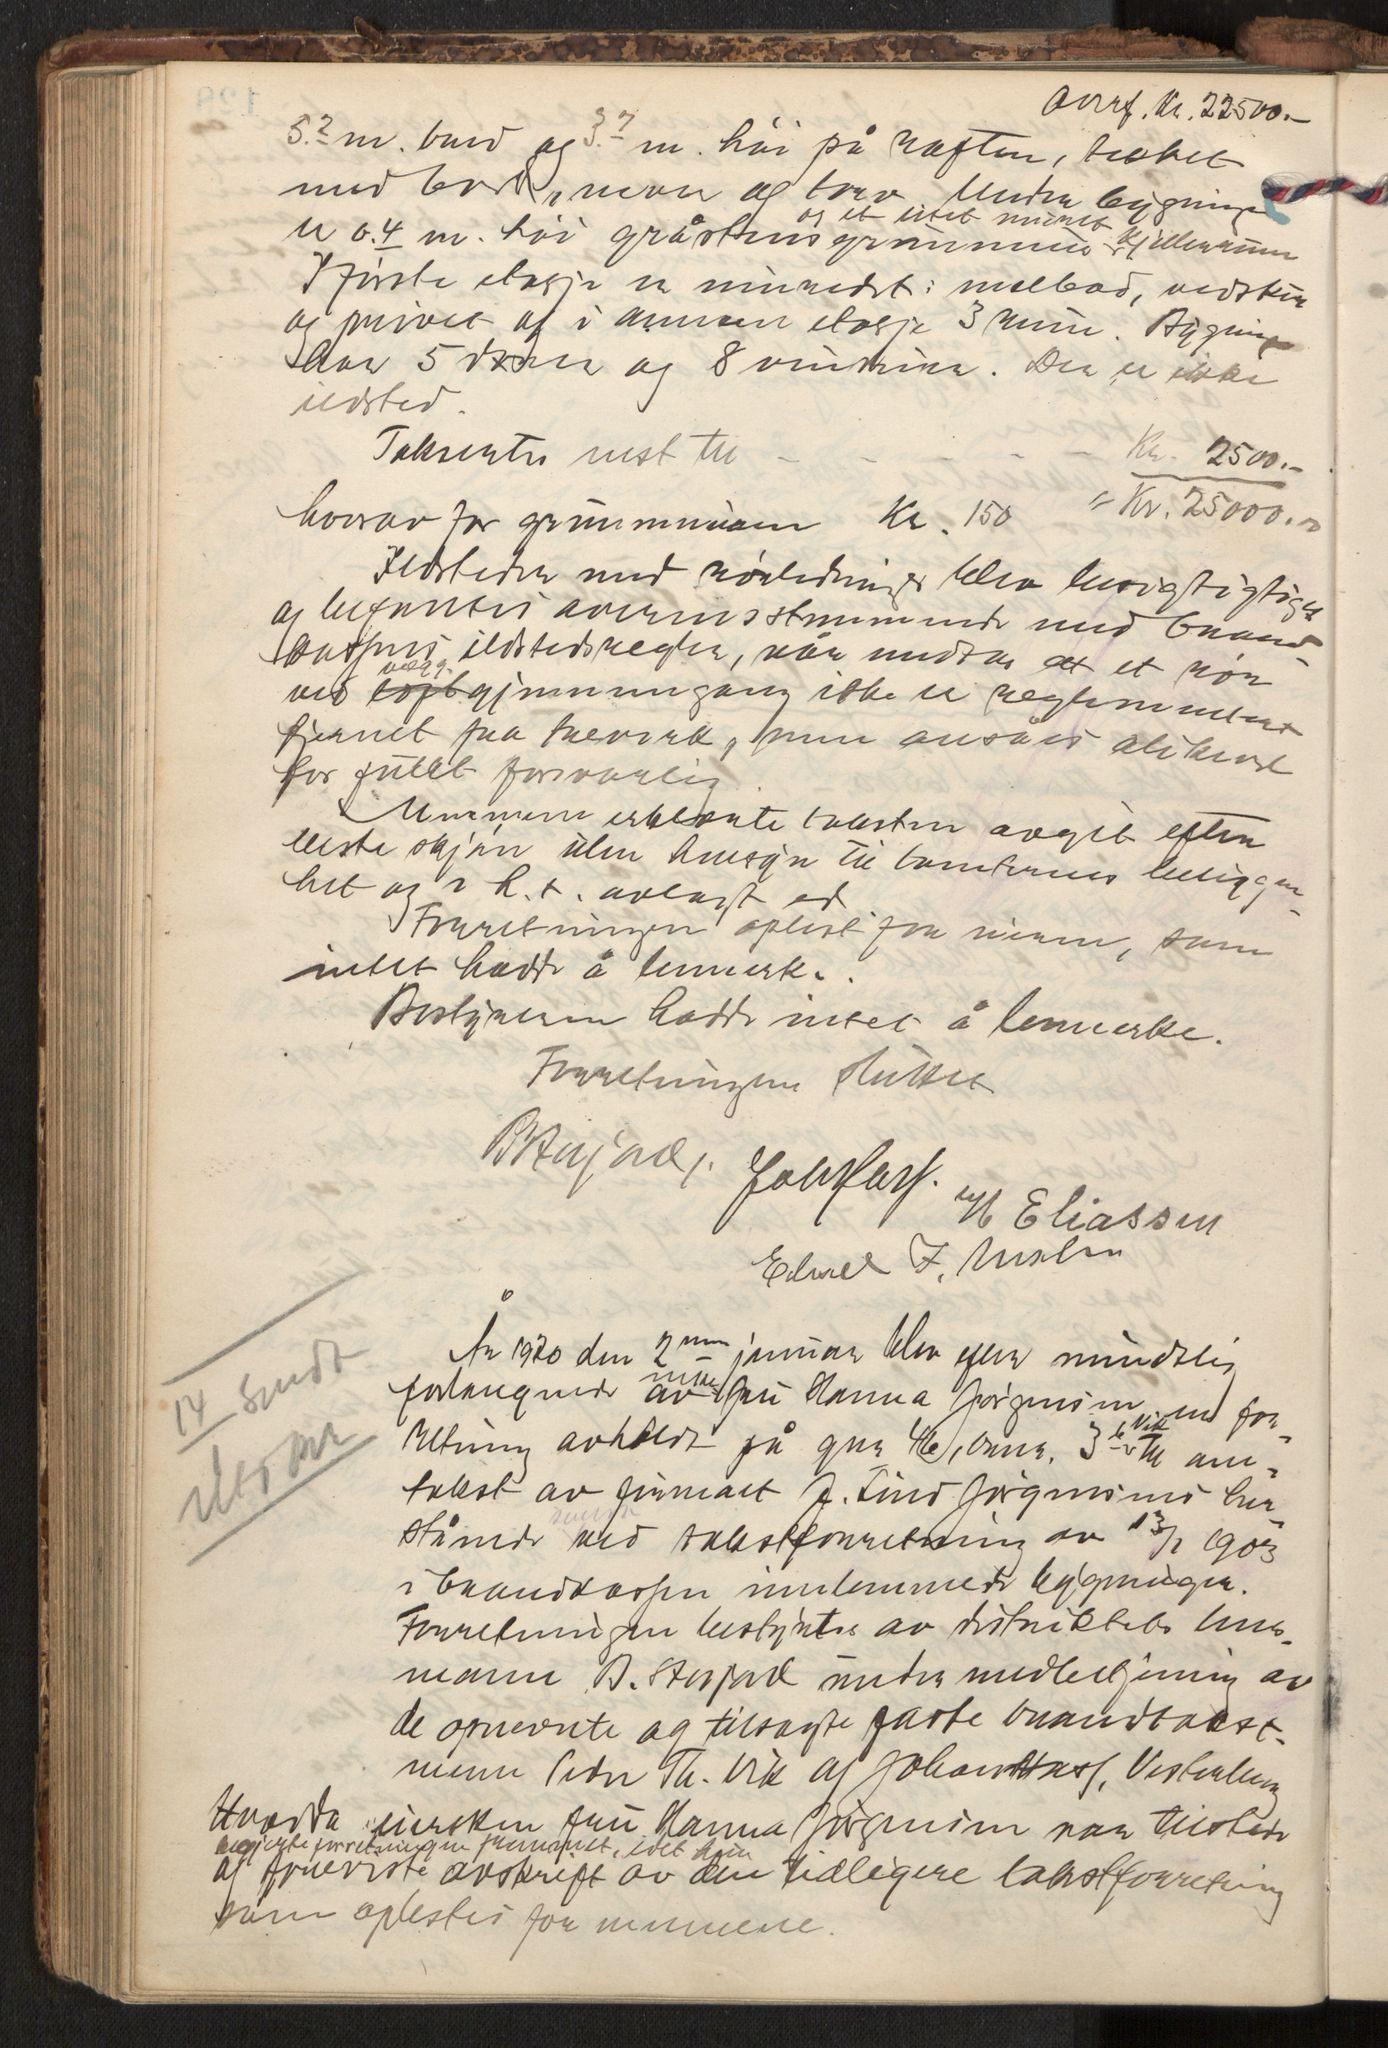 Overf. Kr. 22500.-
5.2 m. bred og 3.7 m. høi på røsten, tækket
med bord, never og torv. Under bygningen
er 0.4 m. høi gråstensgrunnmur og et litet muret kjellerrum
I første etasje er innredet: melbod, vedskur
og privet og i annen etasje 3 rum. Bygningen
har 5 dører og 8 vinduer. Der er ikke
ildsted.
Taksertes nest til - - - - - Kr. 2500.-
hvorav for grunnmuren Kr. 150 = Kr. 25000.-
Ildsteder med rørledninger blev besigtigtiget
og befantes overensstemmende med brand
kassens ildstedsregler, når undtas at et rør
ved loft vægg gjennemgang ikke er reglementert
fjernet fra treverk, men ansåes allikevel
for fullt forsvarlig.
Mennene erklærte taksten avgit efter
beste skjøn uten hensyn til tomternes beliggen-
het og i h. t. avlagt ed
Forretningen oplest for eieren, som
intet hadde å bemerke.
Bestyreren hadde intet å bemerke.
Forretningen sluttet
B Storjord. Joh Hass. Eliassen
Edvard
År 1920 den 2nen januar blev efter mundtlig
forlangende av enke fru Hanna Jørgensen en for-
retning avholdt på gnr 46, bnr. 3 Vik til om-
takst av firmaet J. Lind Jørgensens her-
stående ved takstforretning av 13/1 1903
i brandkassen innlemmede bygninger.
Forretningen bestyrtes av distriktets lens-
mann B. Storjord under medbetjening av
de opnevnte og tilsagte faste brandtakst-
menn Peder Th. Vik og Johan Hass,
Hvorda eiersken fru Hanna Jørgensen var tilstede
begjærte forretningen fremmet, idet hun
og fremviste avskrift av den tidligere takstforretning
som oplestes for mennene.
14 sendt